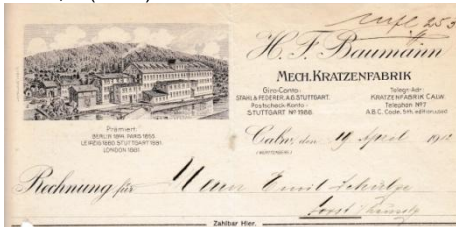 H. F. Baumann
MECH. KRATZENFABRIK
Giro-Conto:
STAHL & FEDERER, A.G. STUTTGART.
Postscheck-Konto:
STUTTGART Nº 1968.
Telegr. Adr:
KRATZENFABRIK CALW.
Telephon Nº 7
A.B.C. Code, 5th. edition used
Prämiert:
BERLIN 1844 PARIS 1855
LEIPZIG 1880 STUTTGART 1881
LONDON 1881
Calw, den 19 April 1912
(WÜRTTEMBERG)
Rechnung für Herrn Emil
Zahlbar Hier.